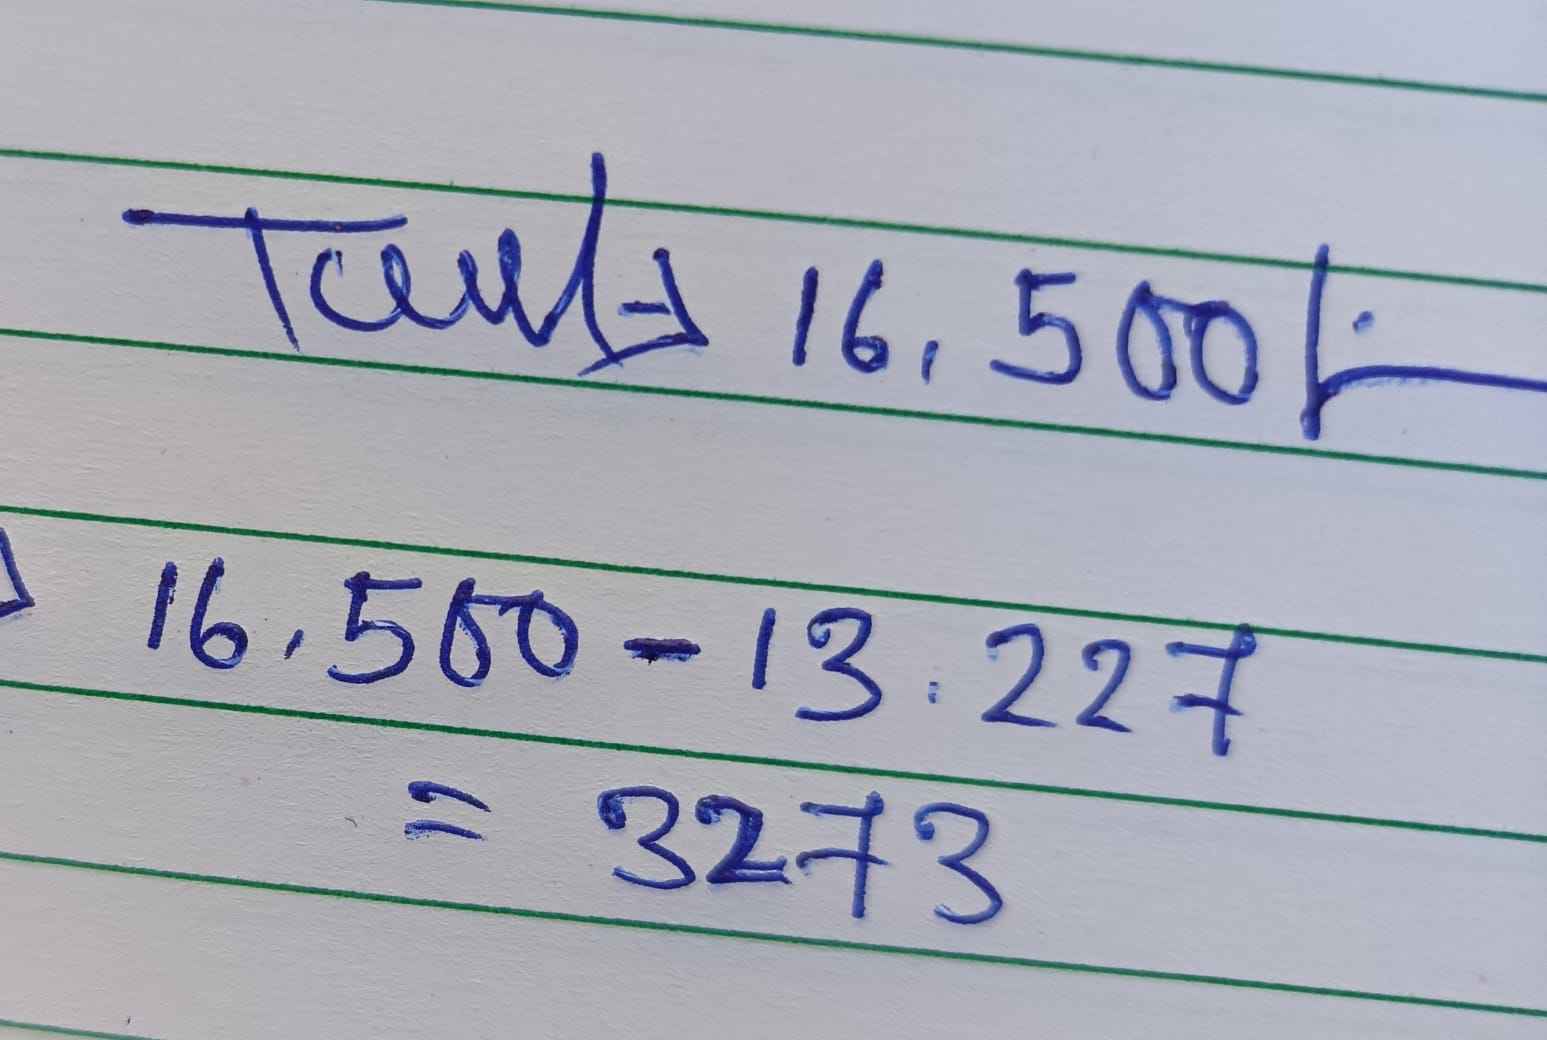 Tank ⇒ 16,500/-
16,500 - 13.227
= 3273